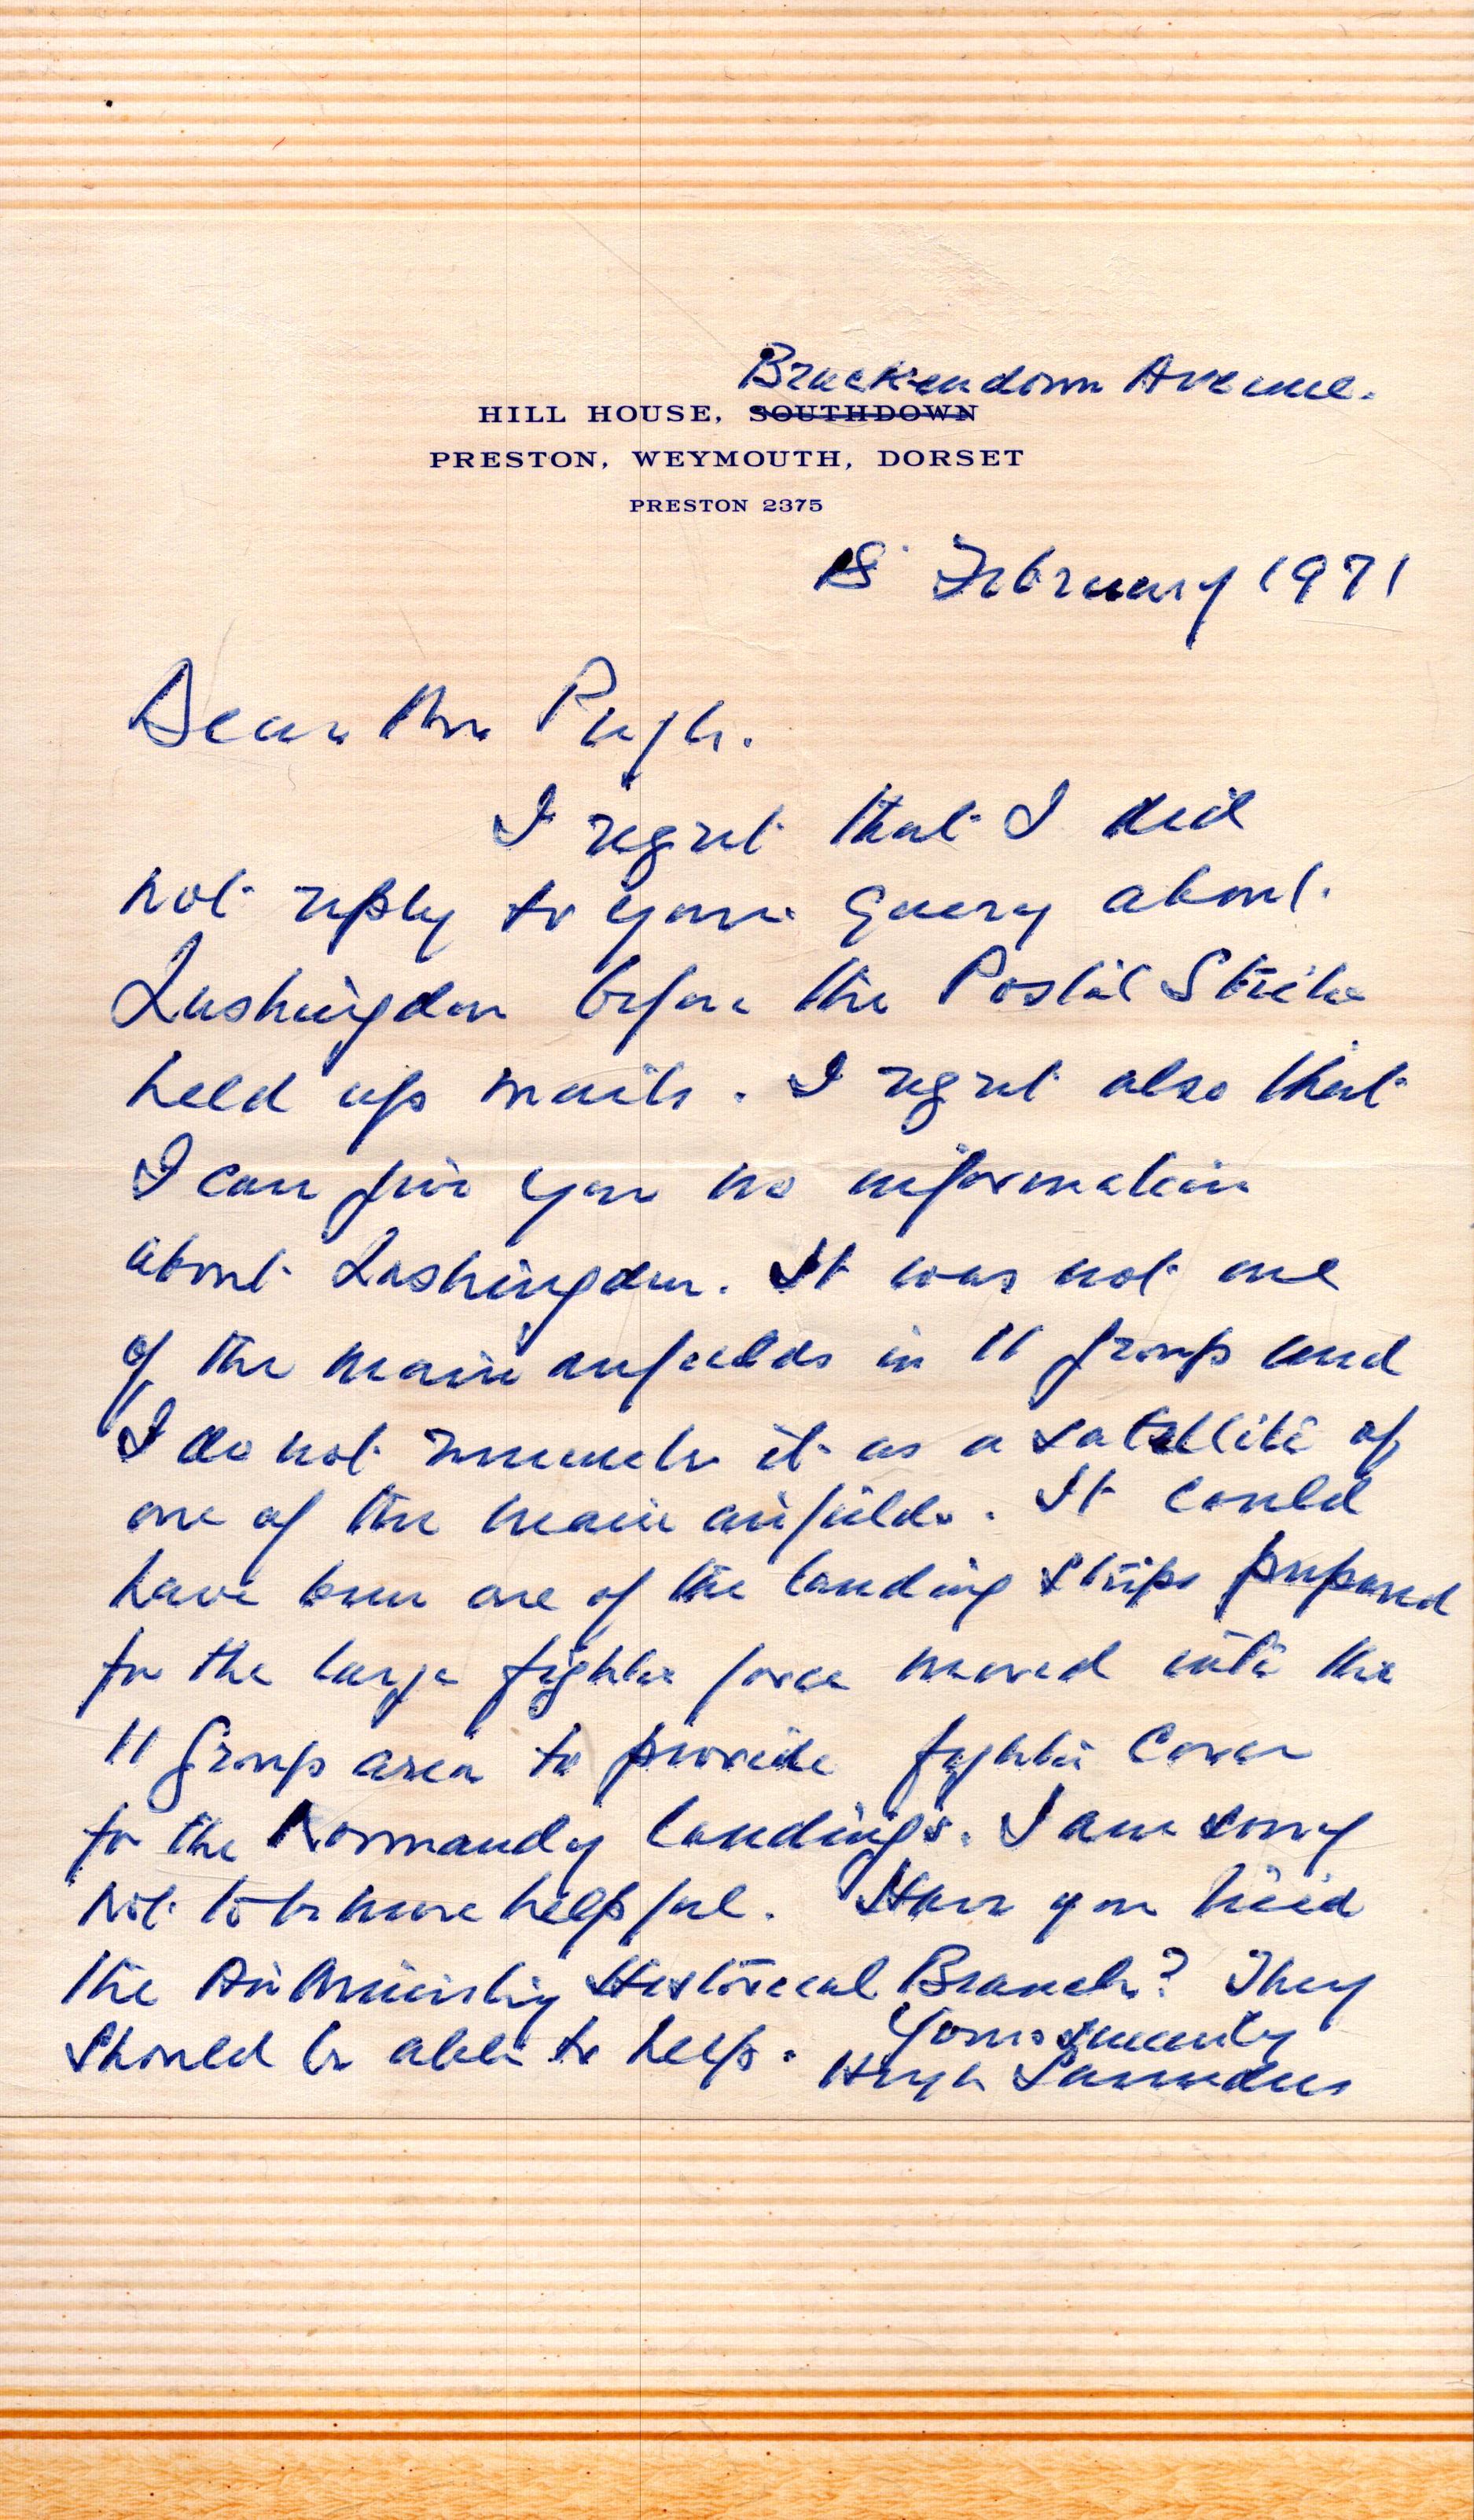 Brackendown Avenue.
HILL HOUSE, SOUTHDOWN
PRESTON, WEYMOUTH, DORSET
PRESTON 2375
18 February 1971
Dear Mr Pugh.
I regret that I did
not reply to your query about
Lashingdon before the Postal Strike
held up mails. I regret also that
I can give you no information
about Lashingdon. It was not one
of the main airfields in 11 Group and
I do not remember it as a satellite of
one of the main airfields. It could
have been one of the landing strips prepared
for the large fighter force moved into the
11 Group area to provide fighter cover
for the Normandy landings. I am sorry
not to be more helpful. Have you tried
the Air Ministry Historical Branch? They
should be able to help. Yours sincerely
Hugh Saunders